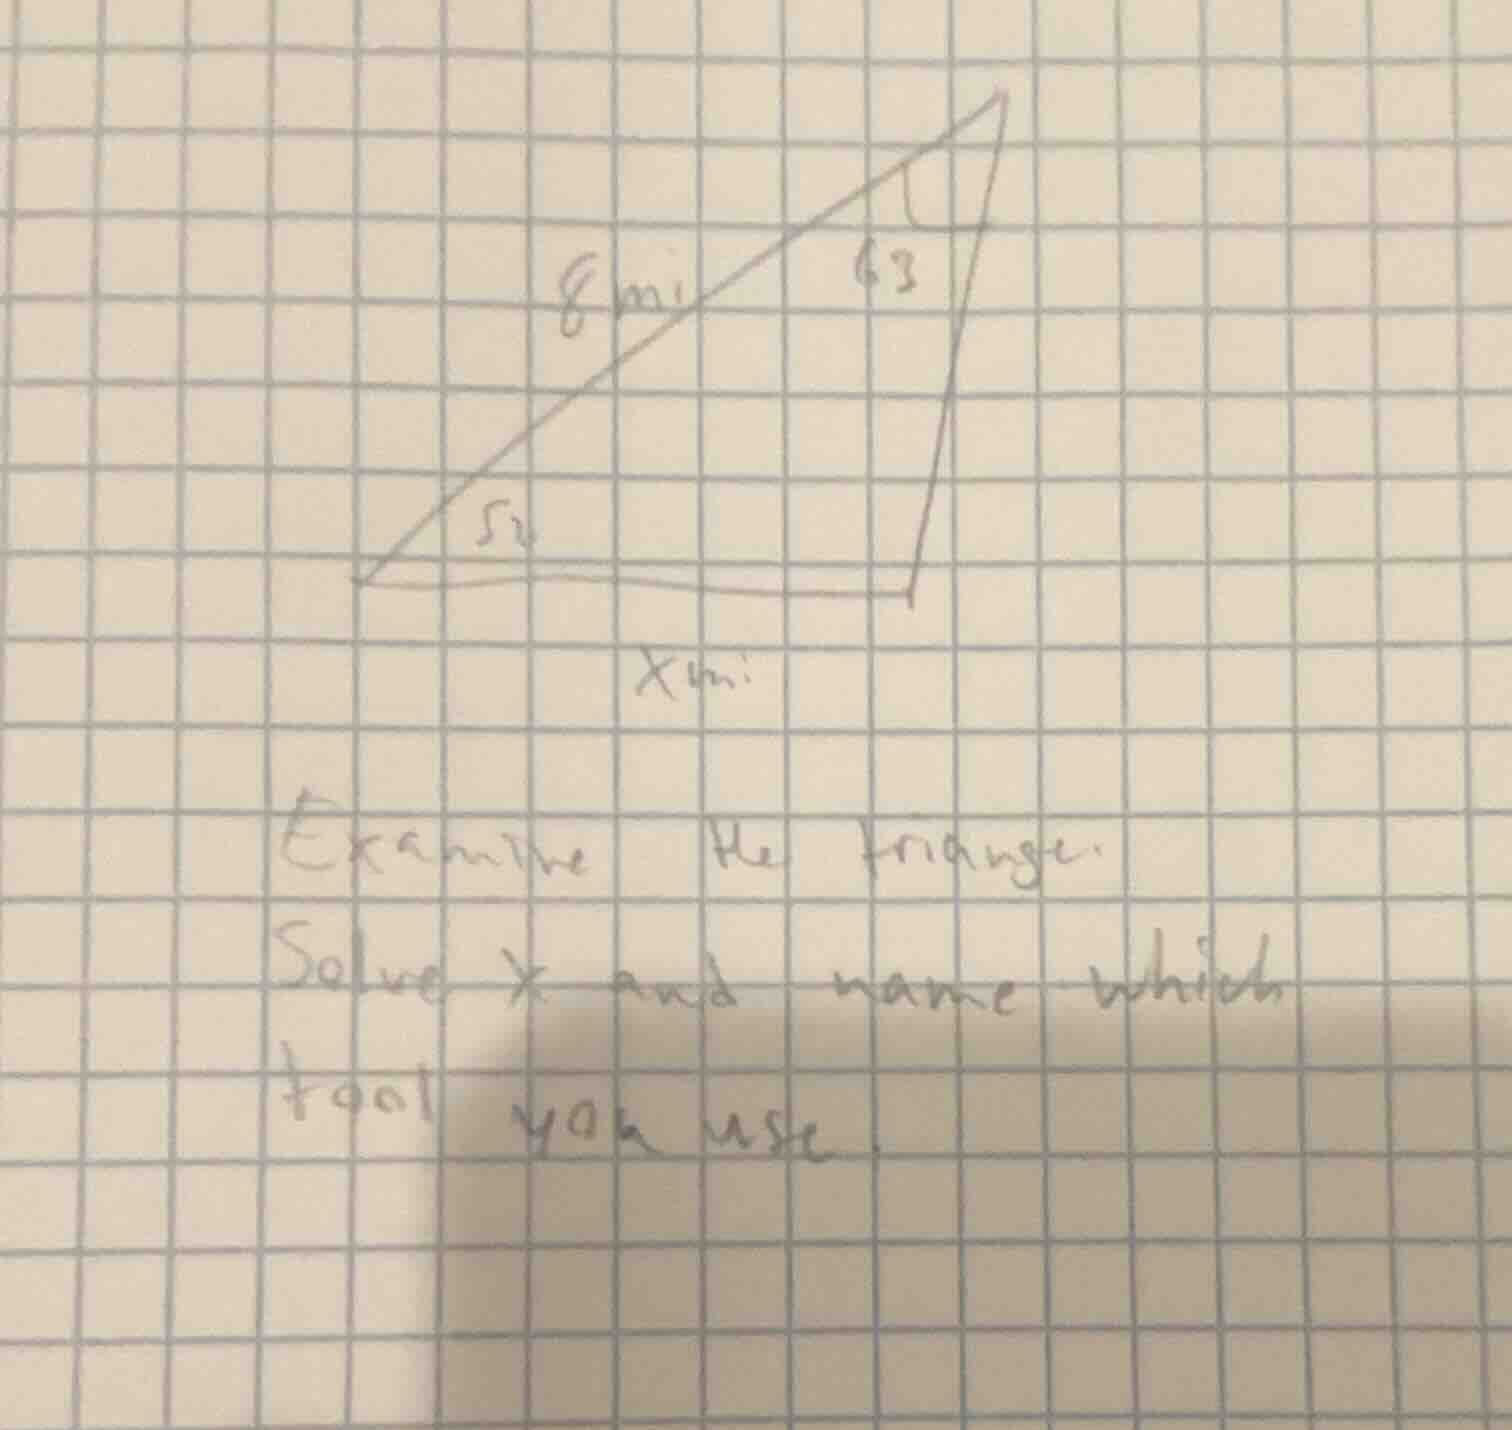 8 mi
63
52
X mi
Examine the triange.
Solve X and name which
tool you use.